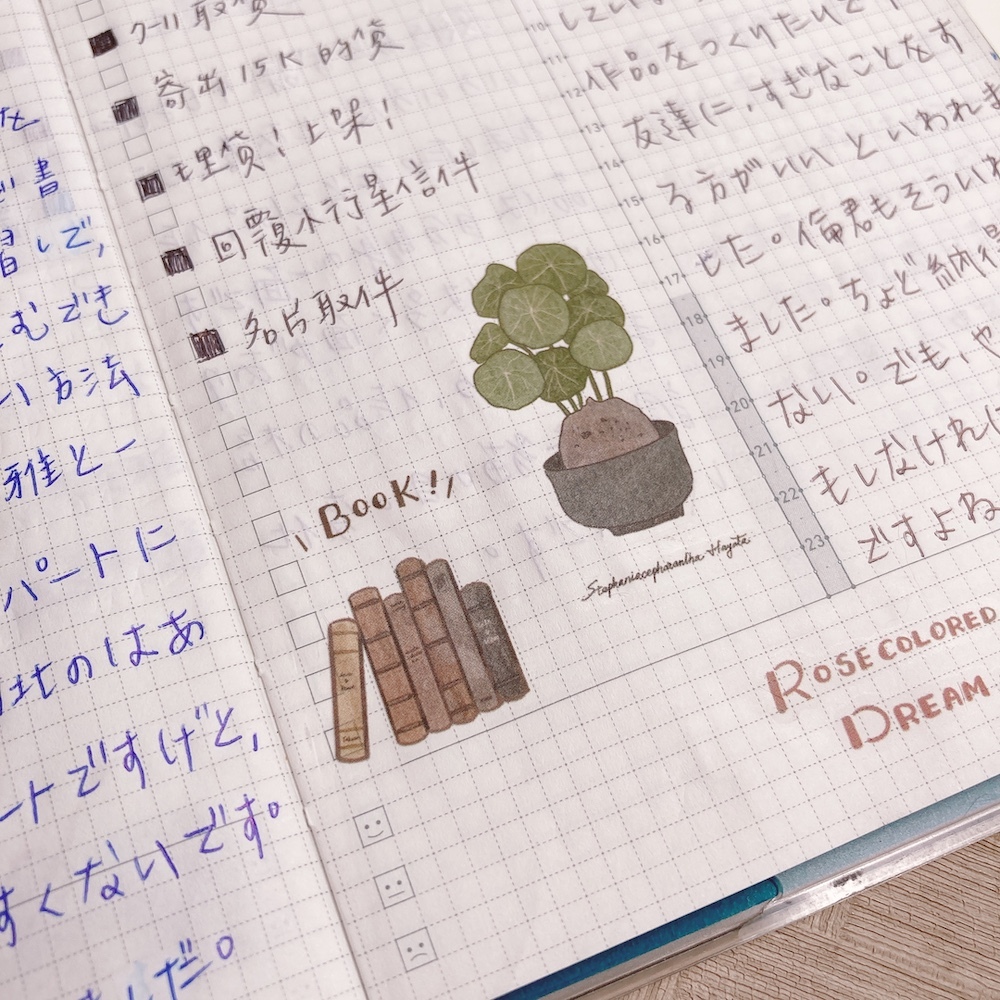 書
しで,
むでき
い方法
雅と一
パートに
北のはあ
ートですげど,
すくないです。
んだ。
取貨
寄出15K的貨
理貨!上架!
回覆小行星信件
名片取件
BOOK!
Stephania cepharantha Hayata
10
11
12
13
14
15
16
17
18
19
20
21
22
23
作品をつくりたいで
友達に,すぎなことをす
る方がいいといわれま
した。倫君もそういわ
ました。ちょど納得
ない。でも,や
もしなければ
ですよね
ROSE COLORED
DREAM